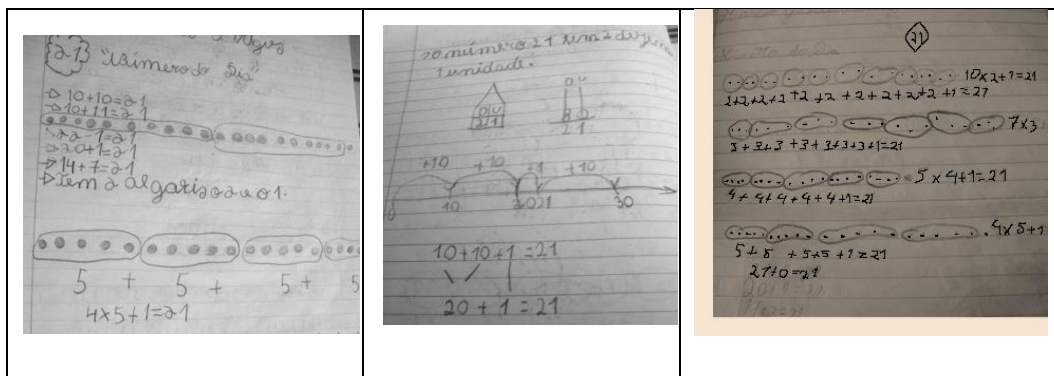 21 "Número do Dia"
→ 10+10=21
→ 10+11=21
→ 22-1=21
→ 20+1=21
→ 14+7=21
→ Tem 2 algarizo 2 u o 1.
5 + 5 + 5 + 5
4×5+1=21
→ o número 21 tem 2
1 unidade.
D U
2 1
D U
2 1
+10 +10 +1 +10
0 10 20 21 30
10+10+1=21
20+1=21
21
10×2+1=21
2+2+2+2+2+2+2+2+2+2+1=21
7×3
3+3+3+3+3+3+3+1=21
5×4+1=21
4+4+4+4+4+1=21
4×5+1
5+5+5+5+1=21
21+0=21
20+1=21